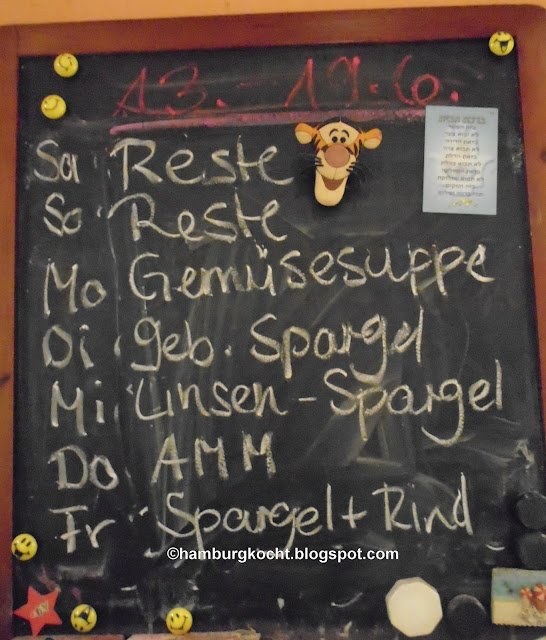 13. - 19.6.
Sa Reste
So Reste
Mo Gemüsesuppe
Di geb. Spargel
Mi Linsen-Spargel
Do AMM
Fr Spargel + Rind
©hamburgkocht.blogspot.com